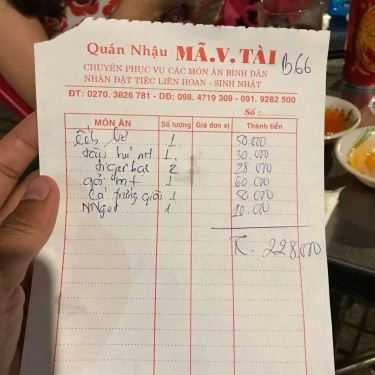 Quán Nhậu MÃ.V.TÀI
B66
CHUYÊN PHỤC VỤ CÁC MÓN ĂN BÌNH DÂN
NHẬN ĐẶT TIỆC LIÊN HOAN - SINH NHẬT
ĐT: 0270. 3826 781 - DĐ: 098. 4719 309 - 091. 9282 500
Số :
MÓN ĂN Số lượng Giá đơn vị Thành tiền
1 50.000
1. 30.000
tiger bạc 2 28 000
gỏi 1 60.000
cá trứng 1 50.000
1 10.000
T. 228.000